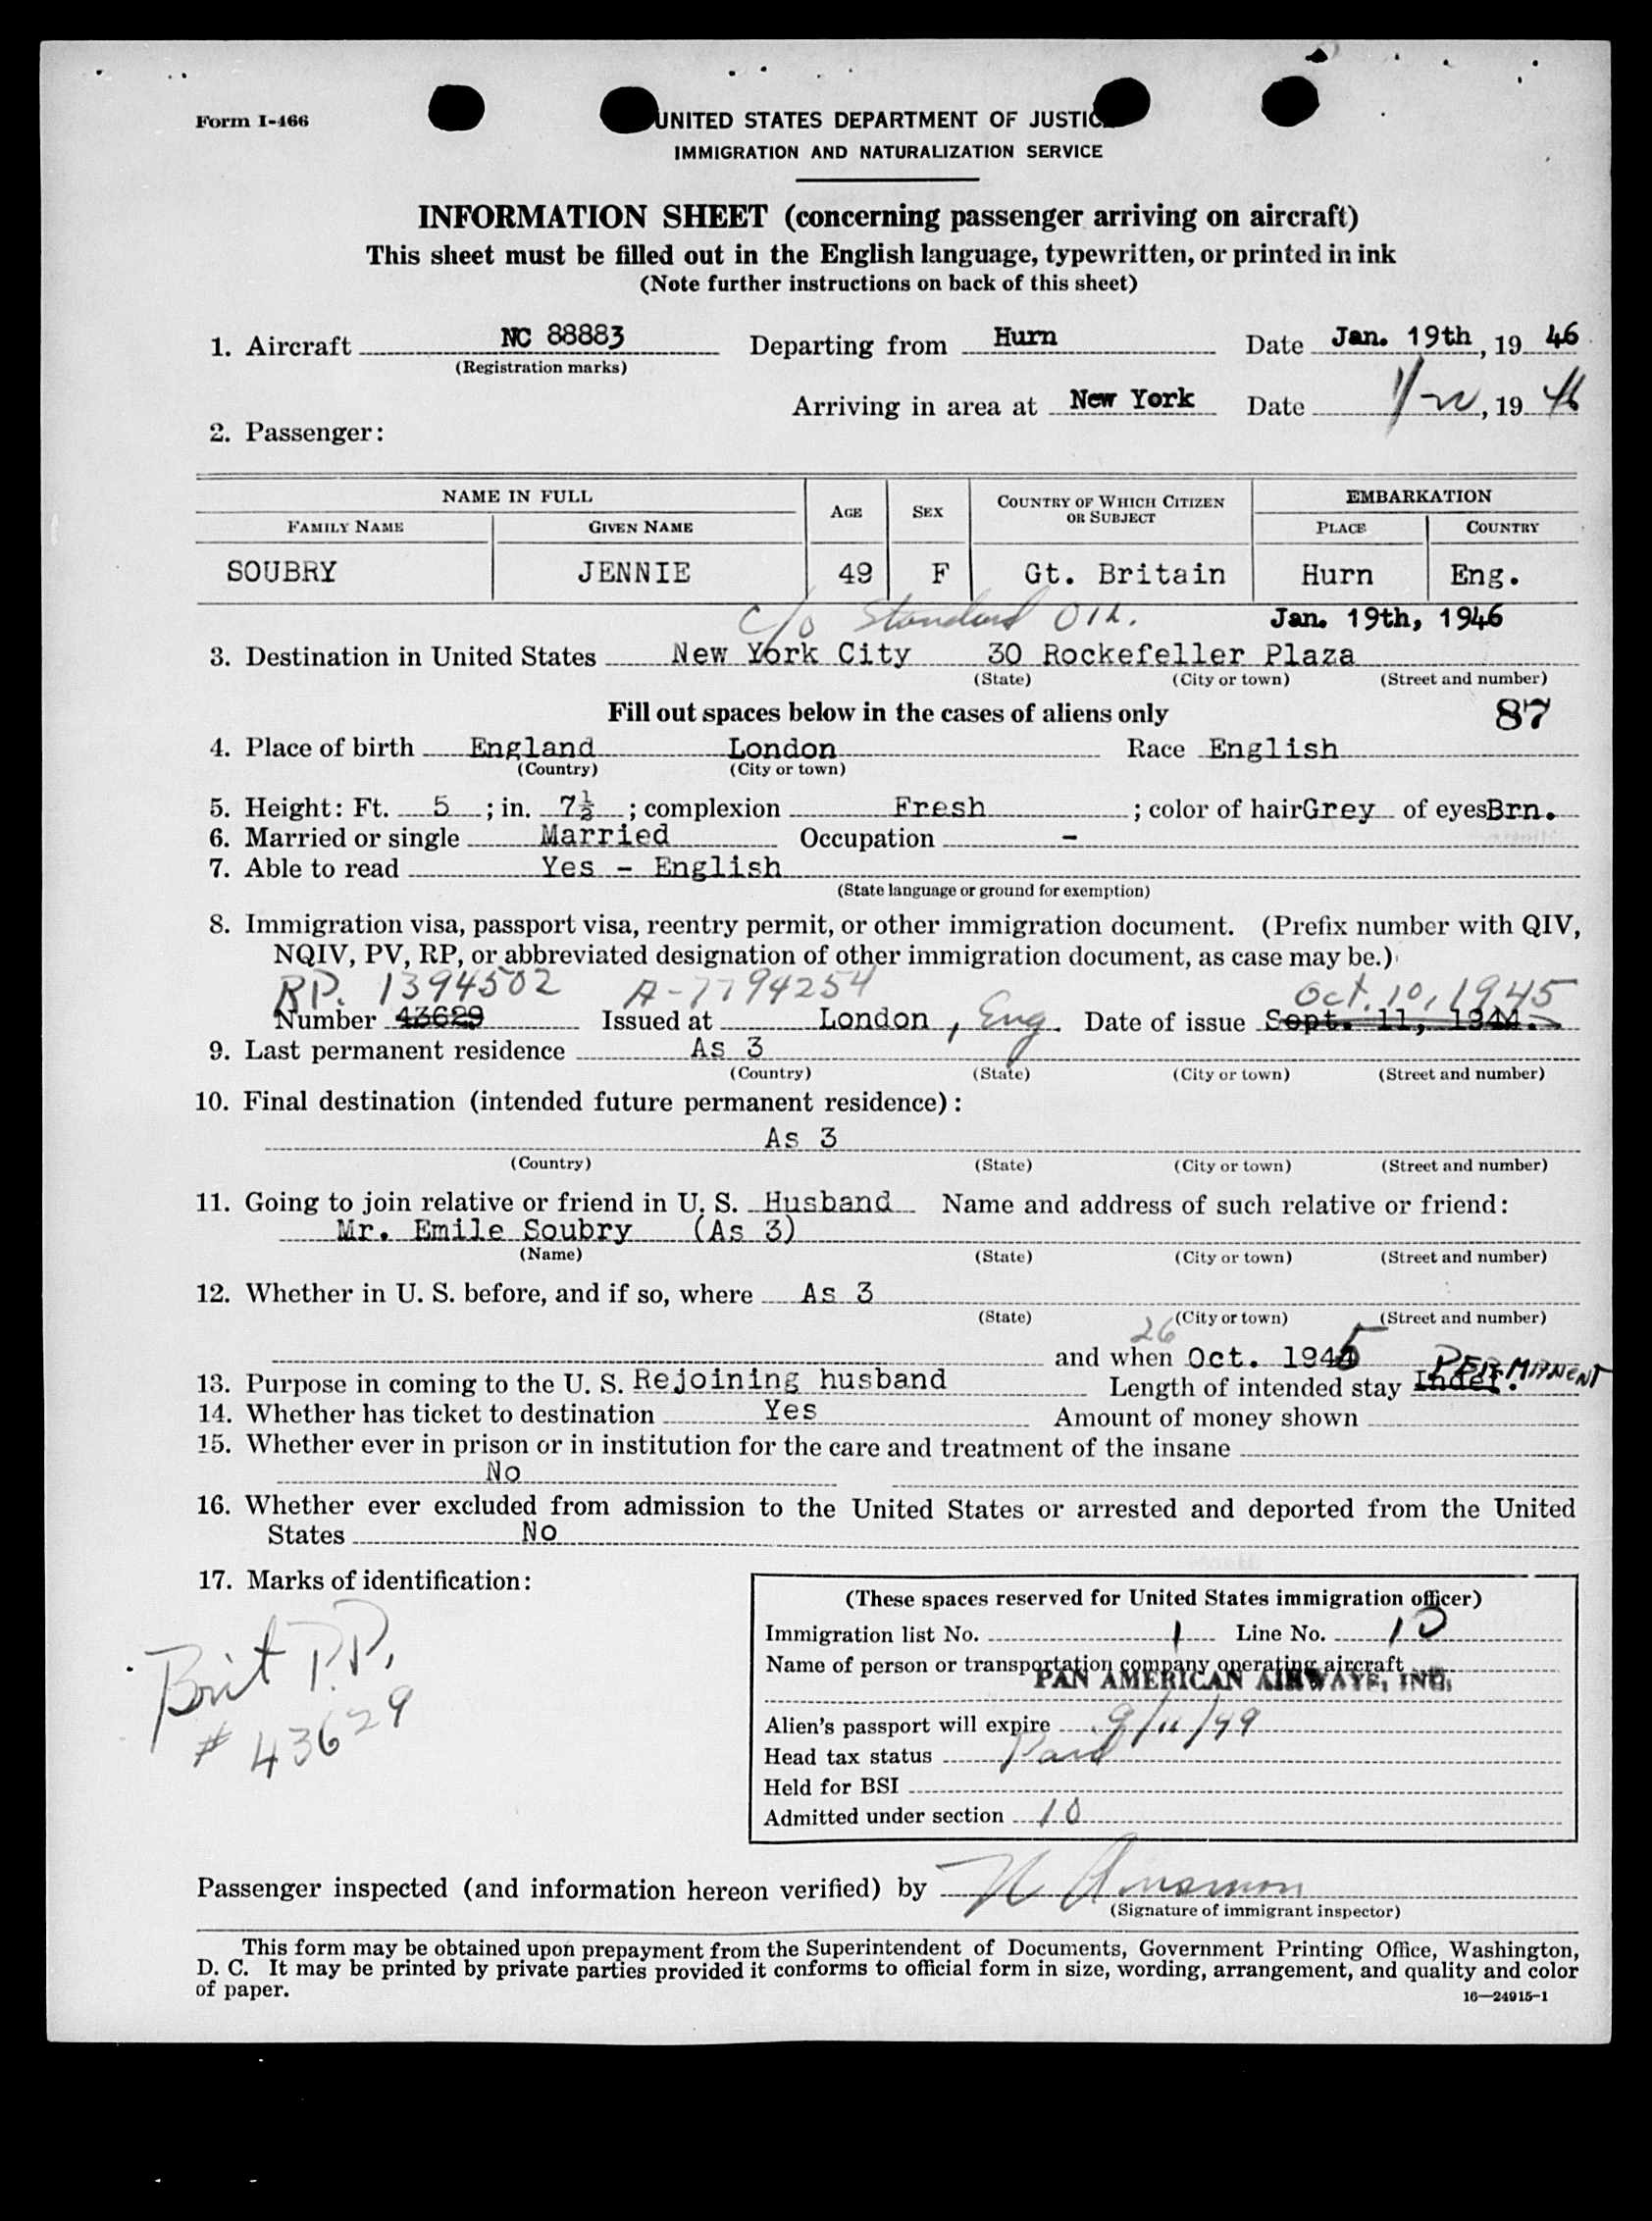 Form I-466
UNITED STATES DEPARTMENT OF JUSTIC
IMMIGRATION AND NATURALIZATION SERVICE
INFORMATION SHEET (concerning passenger arriving on aircraft)
This sheet must be filled out in the English language, typewritten, or printed in ink
(Note further instructions on back of this sheet)
1. Aircraft NC 88883 Departing from Hurn Date Jan. 19th, 19 46
(Registration marks)
Arriving in area at New York Date 1/22, 19 46
2. Passenger:
NAME IN FULL AGE SEX COUNTRY OF WHICH CITIZEN OR SUBJECT EMBARKATION
FAMILY NAME GIVEN NAME PLACE COUNTRY
SOUBRY JENNIE 49 F Gt. Britain Hurn Eng.
c/o Standard Oil. Jan. 19th, 1946
3. Destination in United States New York City 30 Rockefeller Plaza
(State) (City or town) (Street and number)
Fill out spaces below in the cases of aliens only 87
4. Place of birth England London Race English
(Country) (City or town)
5. Height: Ft. 5 ; in. 7½ ; complexion Fresh ; color of hair Grey of eyes Brn.
6. Married or single Married Occupation -
7. Able to read Yes - English
(State language or ground for exemption)
8. Immigration visa, passport visa, reentry permit, or other immigration document. (Prefix number with QIV,
NQIV, PV, RP, or abbreviated designation of other immigration document, as case may be.)
RP. 1394502 A-7794254 Oct. 10, 1945
Number 43629 Issued at London, Eng. Date of issue Sept. 11, 1944.
9. Last permanent residence As 3
(Country) (State) (City or town) (Street and number)
10. Final destination (intended future permanent residence):
As 3
(Country) (State) (City or town) (Street and number)
11. Going to join relative or friend in U. S. Husband Name and address of such relative or friend:
Mr. Emile Soubry (As 3)
(Name) (State) (City or town) (Street and number)
12. Whether in U. S. before, and if so, where As 3
(State) (City or town) (Street and number)
26
and when Oct. 1945
13. Purpose in coming to the U. S. Rejoining husband Length of intended stay Indef. PERMANENT
14. Whether has ticket to destination Yes Amount of money shown
15. Whether ever in prison or in institution for the care and treatment of the insane
No
16. Whether ever excluded from admission to the United States or arrested and deported from the United
States No
17. Marks of identification:
Brit P.P.
# 43629
(These spaces reserved for United States immigration officer)
Immigration list No. 1 Line No. 10
Name of person or transportation company operating aircraft
PAN AMERICAN AIRWAYS, INC.
Alien's passport will expire 9/11/49
Head tax status Paid
Held for BSI
Admitted under section 10
Passenger inspected (and information hereon verified) by
(Signature of immigrant inspector)
This form may be obtained upon prepayment from the Superintendent of Documents, Government Printing Office, Washington,
D. C. It may be printed by private parties provided it conforms to official form in size, wording, arrangement, and quality and color
of paper.
16—24915-1